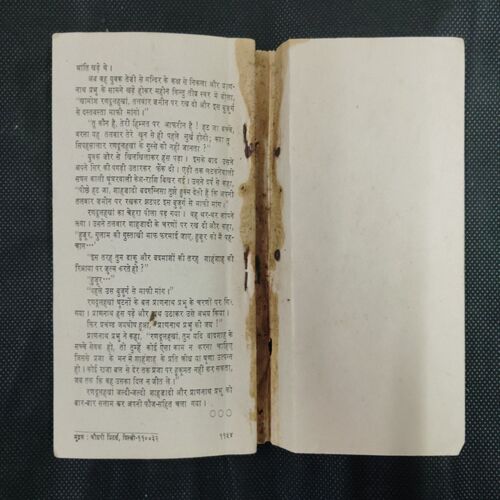 भांति खड़े थे।
अब वह युवक तेज़ी से मन्दिर के कक्ष से निकला और प्राण-
नाथ प्रभु के सामने खड़े होकर महीन किन्तु तीव्र स्वर में बोला,
"खामोश रणदूलहखां, तलवार ज़मीन पर रख दो और इस बुज़ुर्ग
से दस्तबस्ता माफी मांगो।"
"तू कौन है, तेरी हिम्मत पर आफरीन है! हट जा बच्चे,
वरना यह तलवार तेरे खून से ही पहले सुर्ख होगी; क्या तू
सिपहसालार रणदूलहखां के गुस्से को नहीं जानता?"
युवक ज़ोर से खिलखिलाकर हंस पड़ा। इसके बाद उसने
अपने सिर की पगड़ी उतारकर फेंक दी। एड़ी तक लटकनेवाली
सघन काली घूंघरवाली केश-राशि बिखर गई। उसने दर्प से कहा,
"पीछे हट जा, शाहज़ादी बदरुन्निसा तुझे हुक्म देती है कि अपनी
तलवार ज़मीन पर रखकर झटपट इस बुज़ुर्ग से माफी मांग।"
रणदूलहखां का चेहरा पीला पड़ गया। वह थर-थर कांपने
लगा। उसने तलवार शाहज़ादी के चरणों पर रख दी और कहा,
"हुज़ूर, गुलाम की गुस्ताखी माफ फरमाई जाए; हुज़ूर को मैं पह-
चान···"
"इस तरह तुम डाकू और बदमाशों की तरह शाहंशाह की
रिआया पर ज़ुल्म करते हो?"
"हुज़ूर···"
"पहले उस बुज़ुर्ग से माफी मांग।"
रणदूलहखां घुटनों के बल प्राणनाथ प्रभु के चरणों पर गिर
गया। प्राणनाथ हंस पड़े और उठाकर उसे अभय किया।
फिर प्रचण्ड जयघोष हुआ, "प्राणनाथ प्रभु की जय!"
प्राणनाथ प्रभु ने कहा, "रणदूलहखां, तुम यदि बादशाह के
सच्चे सेवक हो, तो तुम्हें कोई ऐसा काम न करना चाहिए
जिससे प्रजा के मन में शाहंशाह के प्रति क्रोध या घृणा उत्पन्न
हो। कोई राजा बल से देर तक प्रजा पर हुकूमत नहीं कर सकता,
जब तक कि वह उसका दिल न जीत ले।"
रणदूलहखां जल्दी-जल्दी शाहज़ादी और प्राणनाथ प्रभु को
बार-बार सलाम कर अपनी फौज-सहित चला गया।
○○○
मुद्रक : चौधरी प्रिंटर्स, दिल्ली-११००३२ ११६४